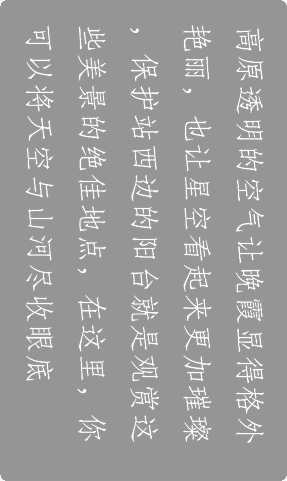 高原透明的空气让晚霞显得格外
艳丽，也让星空看起来更加璀璨
，保护站西边的阳台就是观赏这
些美景的绝佳地点，在这里，你
可以将天空与山河尽收眼底